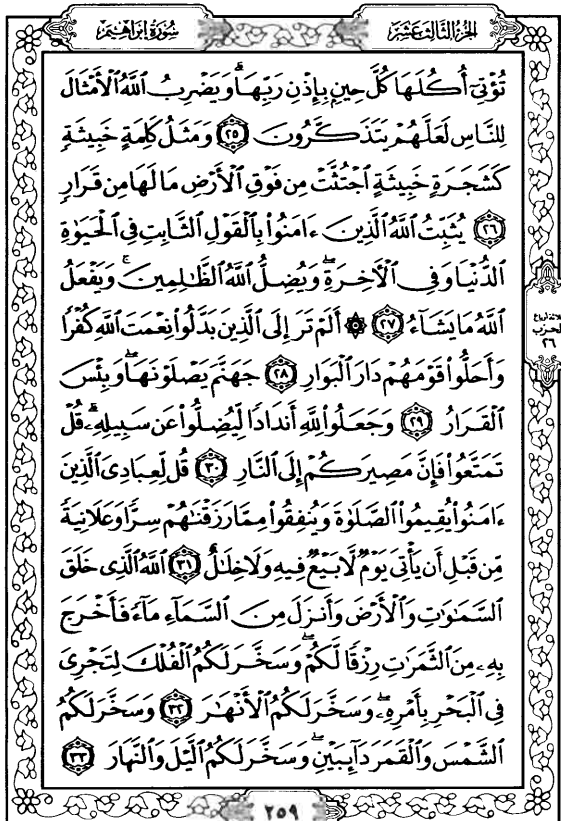 الجزء الثالث عشر
سورة إبراهيم
تُؤْتِىٓ أُكُلَهَا كُلَّ حِينٍۭ بِإِذْنِ رَبِّهَاۗ وَيَضْرِبُ ٱللَّهُ ٱلْأَمْثَالَ
لِلنَّاسِ لَعَلَّهُمْ يَتَذَكَّرُونَ ٢٥ وَمَثَلُ كَلِمَةٍ خَبِيثَةٍ
كَشَجَرَةٍ خَبِيثَةٍ ٱجْتُثَّتْ مِن فَوْقِ ٱلْأَرْضِ مَا لَهَا مِن قَرَارٍ
٢٦ يُثَبِّتُ ٱللَّهُ ٱلَّذِينَ ءَامَنُوا۟ بِٱلْقَوْلِ ٱلثَّابِتِ فِى ٱلْحَيَوٰةِ
ٱلدُّنْيَا وَفِى ٱلْـَٔاخِرَةِۖ وَيُضِلُّ ٱللَّهُ ٱلظَّـٰلِمِينَۚ وَيَفْعَلُ
ٱللَّهُ مَا يَشَآءُ ٢٧ ۞ أَلَمْ تَرَ إِلَى ٱلَّذِينَ بَدَّلُوا۟ نِعْمَتَ ٱللَّهِ كُفْرًا
وَأَحَلُّوا۟ قَوْمَهُمْ دَارَ ٱلْبَوَارِ ٢٨ جَهَنَّمَ يَصْلَوْنَهَاۖ وَبِئْسَ
ٱلْقَرَارُ ٢٩ وَجَعَلُوا۟ لِلَّهِ أَندَادًا لِّيُضِلُّوا۟ عَن سَبِيلِهِۦۗ قُلْ
تَمَتَّعُوا۟ فَإِنَّ مَصِيرَكُمْ إِلَى ٱلنَّارِ ٣٠ قُل لِّعِبَادِىَ ٱلَّذِينَ
ءَامَنُوا۟ يُقِيمُوا۟ ٱلصَّلَوٰةَ وَيُنفِقُوا۟ مِمَّا رَزَقْنَـٰهُمْ سِرًّا وَعَلَانِيَةً
مِّن قَبْلِ أَن يَأْتِىَ يَوْمٌ لَّا بَيْعٌ فِيهِ وَلَا خِلَـٰلٌ ٣١ ٱللَّهُ ٱلَّذِى خَلَقَ
ٱلسَّمَـٰوَٰتِ وَٱلْأَرْضَ وَأَنزَلَ مِنَ ٱلسَّمَآءِ مَآءً فَأَخْرَجَ
بِهِۦ مِنَ ٱلثَّمَرَٰتِ رِزْقًا لَّكُمْۖ وَسَخَّرَ لَكُمُ ٱلْفُلْكَ لِتَجْرِىَ
فِى ٱلْبَحْرِ بِأَمْرِهِۦۖ وَسَخَّرَ لَكُمُ ٱلْأَنْهَـٰرَ ٣٢ وَسَخَّرَ لَكُمُ
ٱلشَّمْسَ وَٱلْقَمَرَ دَآئِبَيْنِۖ وَسَخَّرَ لَكُمُ ٱلَّيْلَ وَٱلنَّهَارَ ٣٣
ثلاثة أرباع
الحزب
٢٦
٢٥٩